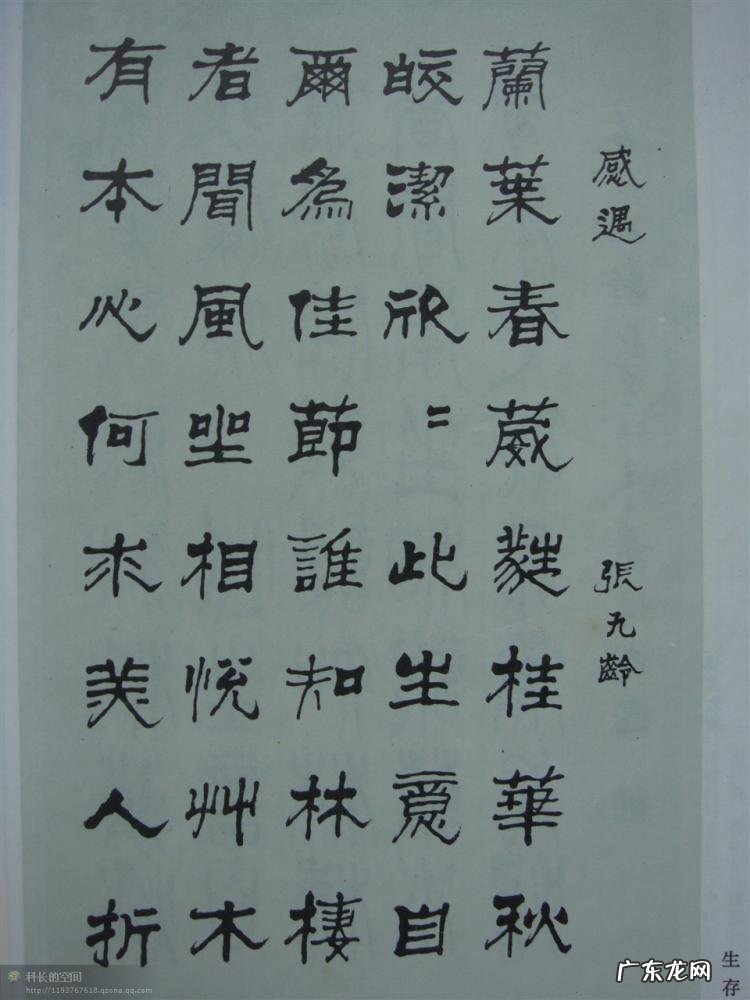 感遇 張九齡
蘭葉春葳蕤桂華秋
皎潔欣〻此生意自
爾為佳節誰知林棲
者聞風坐相悅艸木
有本心何求美人折
生存
科长的空间
http://1193767618.qzone.qq.com
广东龙网